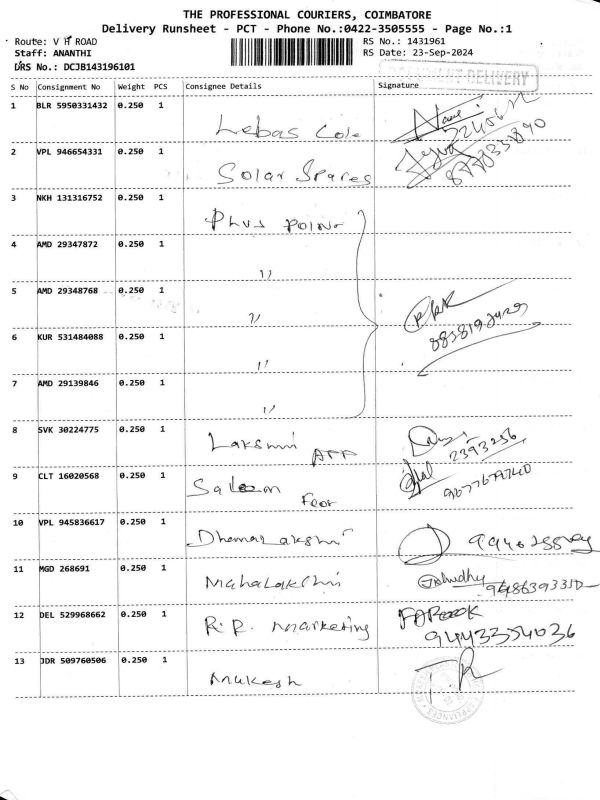 THE PROFESSIONAL COURIERS, COIMBATORE
Delivery Runsheet - PCT - Phone No.:0422-3505555 - Page No.:1
Route: V H ROAD RS No.: 1431961
Staff: ANANTHI RS Date: 23-Sep-2024
DRS No.: DCJB143196101
S No Consignment No Weight PCS Consignee Details Signature
1 BLR 5950331432 0.250 1 Lebas Cole
2 VPL 946654331 0.250 1 Solar Spares
3 NKH 131316752 0.250 1 Plus Point
4 AMD 29347872 0.250 1 "
5 AMD 29348768 0.250 1 "
6 KUR 531484088 0.250 1 "
7 AMD 29139846 0.250 1 "
8 SVK 30224775 0.250 1 Lakshmi APP 2393256
9 CLT 16020568 0.250 1 Salem Foot
10 VPL 945836617 0.250 1 DhanaLakshmi
11 MGD 268691 0.250 1 MahaLakshmi
12 DEL 529968662 0.250 1 R.R. Marketing FAROOK
9443354036
13 JDR 509760506 0.250 1 Mukesh T.R